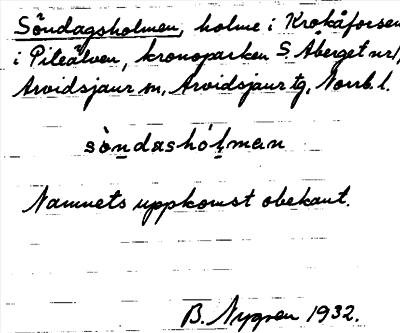 Söndagsholmen, holme i Krokåforsen
i Piteälven, kronoparken S. Åberget nr 1,
Arvidsjaur sn, Arvidsjaur tg, Norrb. l.
sòndashólman
Namnets uppkomst obekant.
B. Nygren 1932.